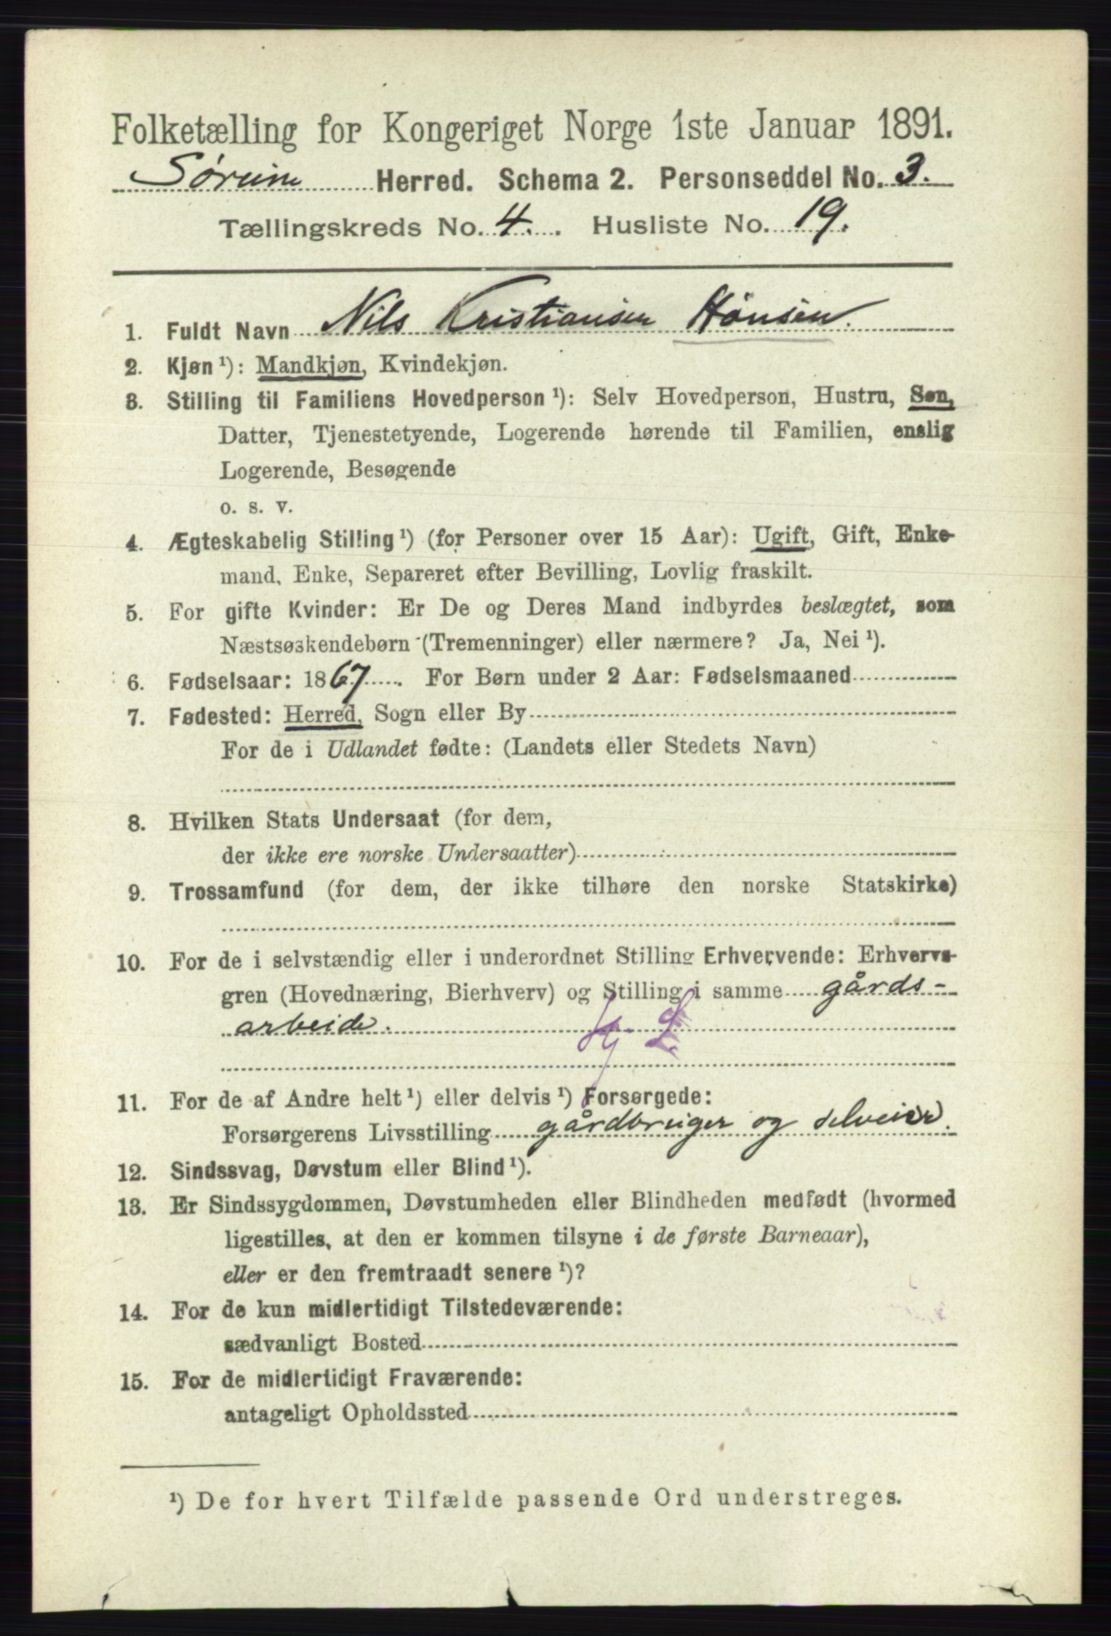 Folketælling for Kongeriget Norge 1ste Januar 1891.
Sørum Herred. Schema 2. Personseddel No. 3.
Tællingskreds No. 4. Husliste No. 19.
1. Fuldt Navn Nils Kristiansen Hønsen.
2. Kjøn ¹): Mandkjøn, Kvindekjøn.
3. Stilling til Familiens Hovedperson ¹): Selv Hovedperson, Hustru, Søn,
Datter, Tjenestetyende, Logerende hørende til Familien, enslig
Logerende, Besøgende
o. s. v.
4. Ægteskabelig Stilling ¹) (for Personer over 15 Aar): Ugift, Gift, Enke-
mand, Enke, Separeret efter Bevilling, Lovlig fraskilt.
5. For gifte Kvinder: Er De og Deres Mand indbyrdes beslægtet, som
Næstsøskendebørn (Tremenninger) eller nærmere? Ja, Nei ¹).
6. Fødselsaar: 1867. For Børn under 2 Aar: Fødselsmaaned
7. Fødested: Herred, Sogn eller By
For de i Udlandet fødte: (Landets eller Stedets Navn)
8. Hvilken Stats Undersaat (for dem,
der ikke ere norske Undersaatter)
9. Trossamfund (for dem, der ikke tilhøre den norske Statskirke)
10. For de i selvstændig eller i underordnet Stilling Erhvervende: Erhvervs-
gren (Hovednæring, Bierhverv) og Stilling i samme gårds-
arbeide.
11. For de af Andre helt ¹) eller delvis ¹) Forsørgede:
Forsørgerens Livsstilling gårdbruger og selveier.
12. Sindssvag, Døvstum eller Blind ¹).
13. Er Sindssygdommen, Døvstumheden eller Blindheden medfødt (hvormed
ligestilles, at den er kommen tilsyne i de første Barneaar),
eller er den fremtraadt senere ¹)?
14. For de kun midlertidigt Tilstedeværende:
sædvanligt Bosted
15. For de midlertidigt Fraværende:
antageligt Opholdssted
¹) De for hvert Tilfælde passende Ord understreges.